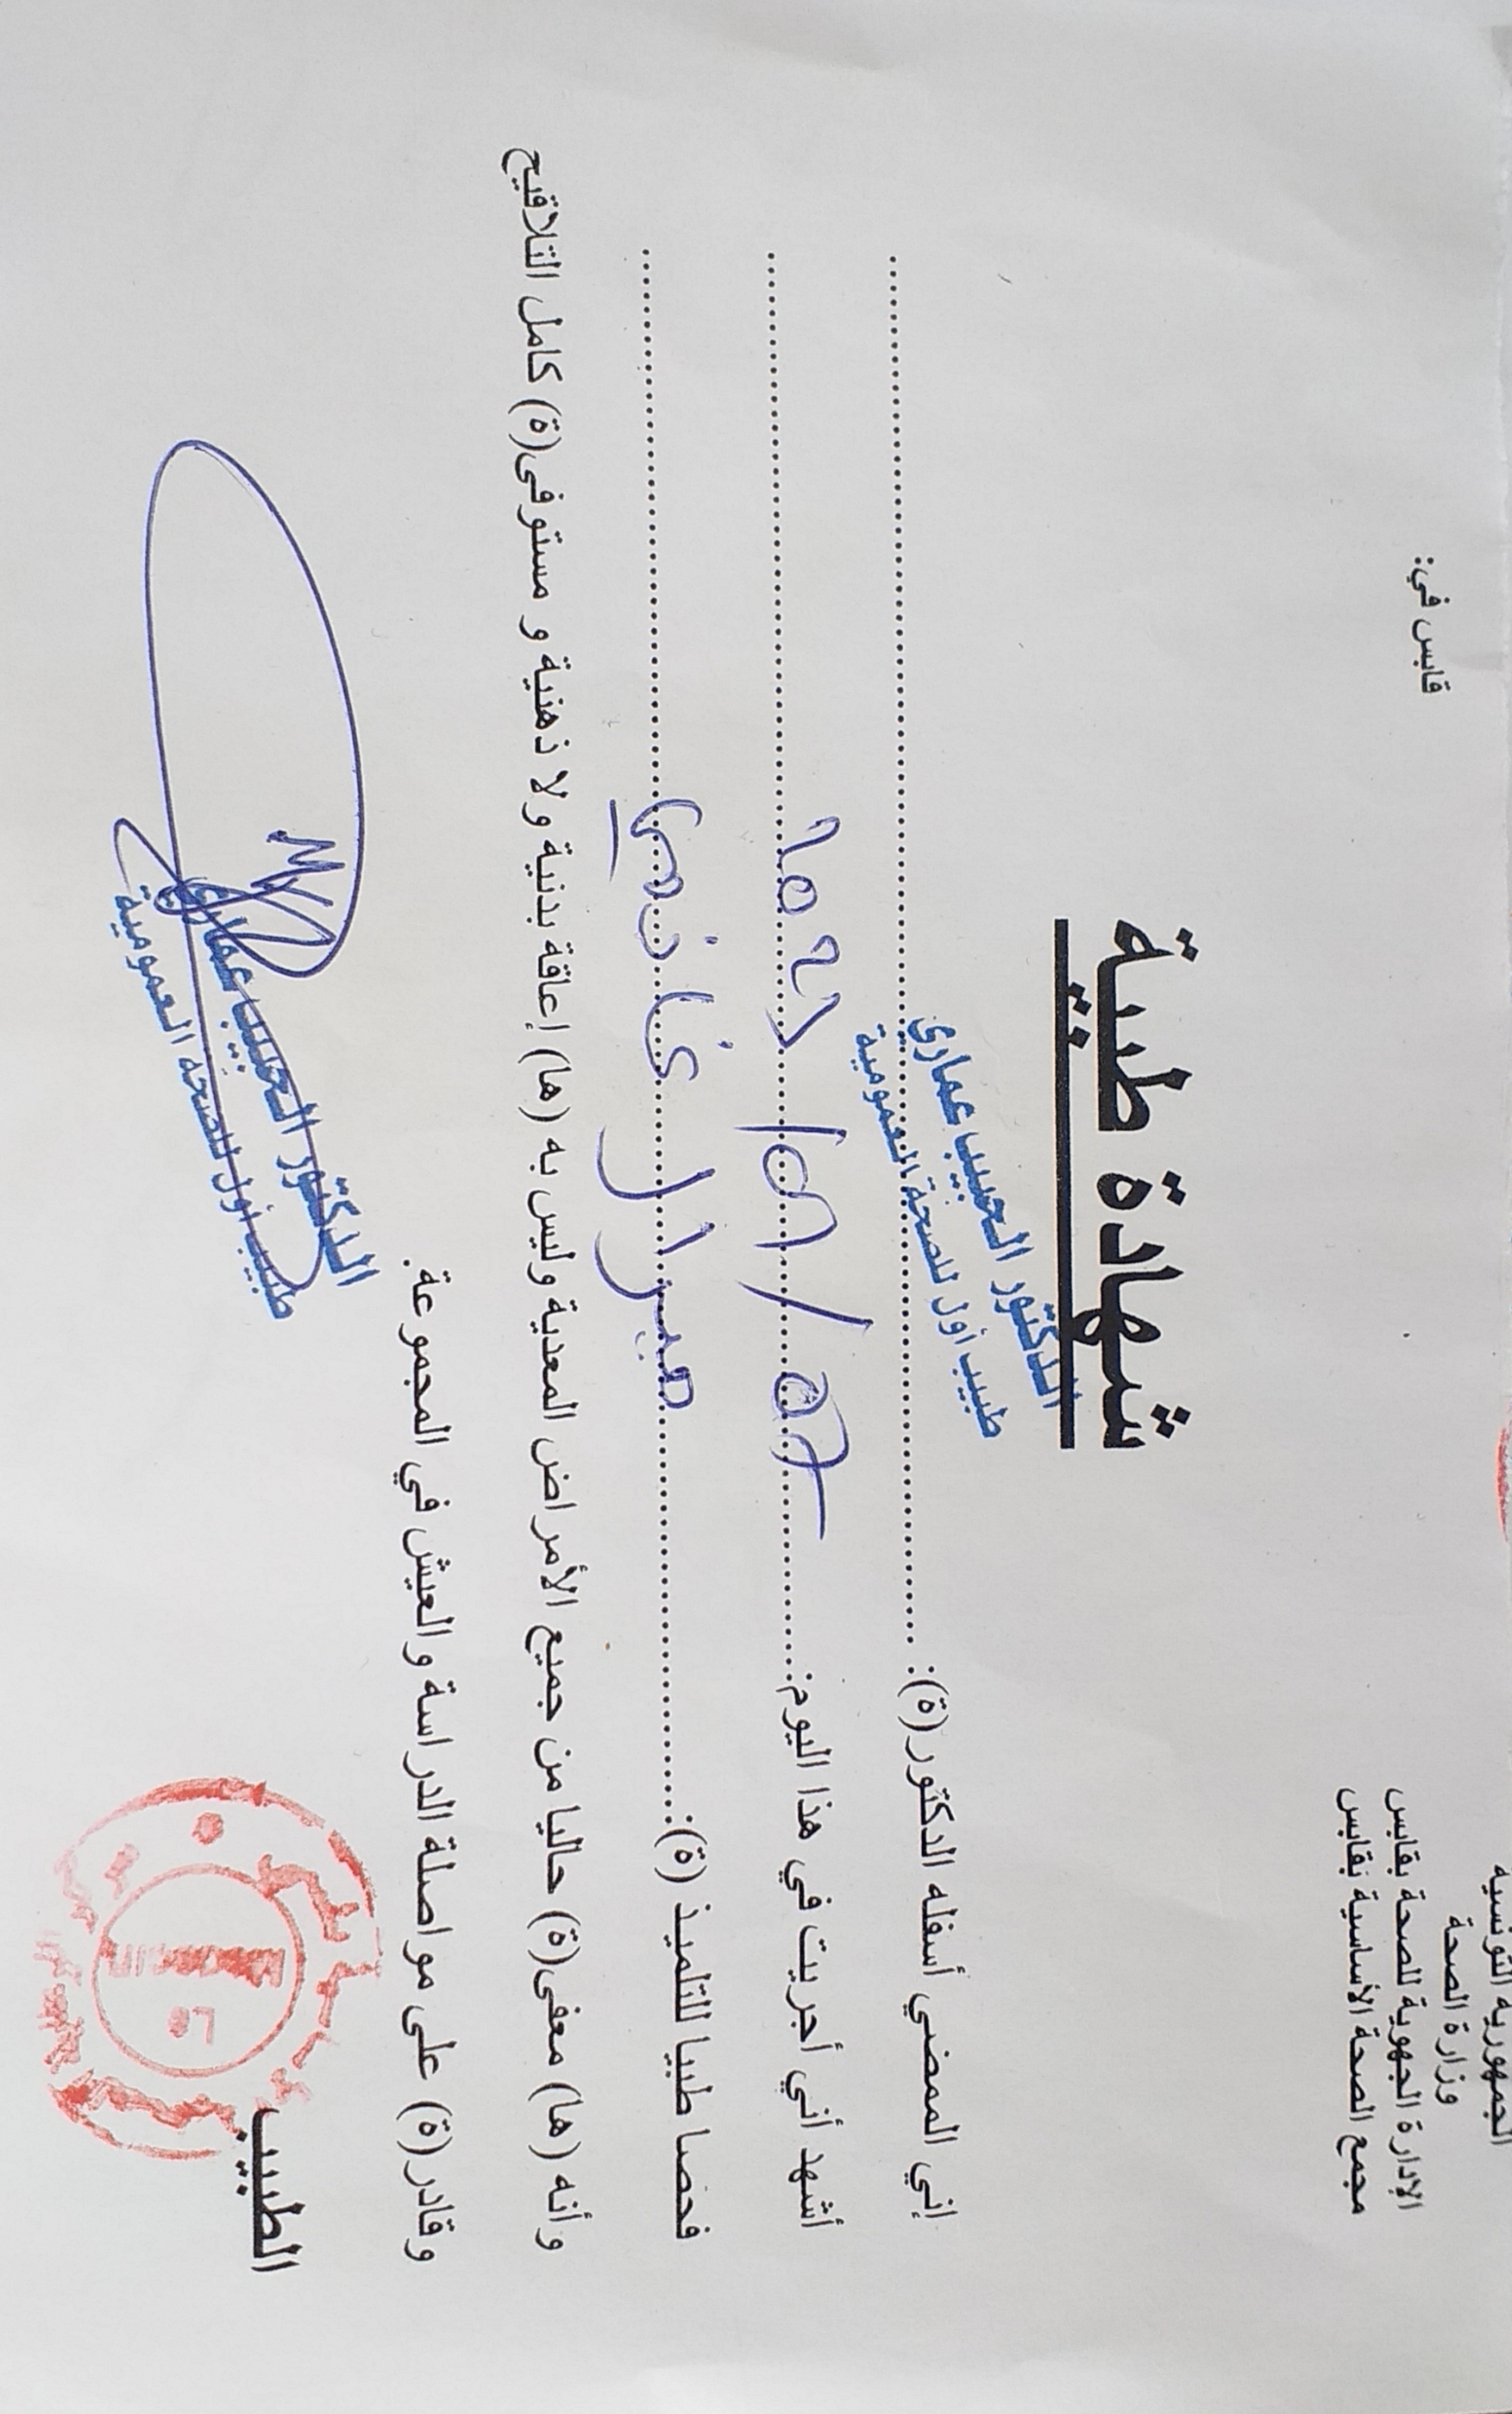 الجمهورية التونسية
وزارة الصحة
الإدارة الجهوية للصحة بقابس
مجمع الصحة الأساسية بقابس
قابس في:
شهادة طبية
إني الممضي أسفله الدكتور(ة):
الدكتور الحبيب عماري
طبيب أول للصحة العمومية
أشهد أني أجريت في هذا اليوم:
فحصا طبيا للتلميذ (ة):
وأنه (ها) معفى(ة) حاليا من جميع الأمراض المعدية وليس به (ها) إعاقة بدنية ولا ذهنية و مستوفى(ة) كامل التلاقيح
وقادر(ة) على مواصلة الدراسة والعيش في المجموعة.
الطبيب
الدكتور الحبيب عماري
طبيب أول للصحة العمومية